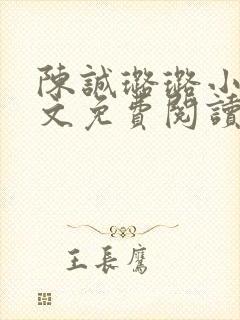 陳誠璐璐小
文免費閱讀
王長鷹